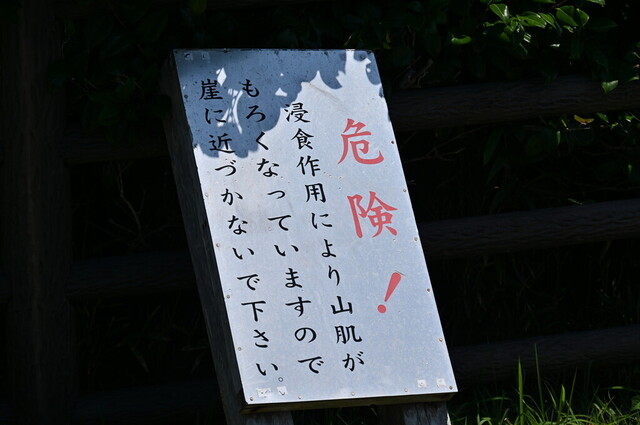 危険！
浸食作用により山肌が
もろくなっていますので
崖に近づかないで下さい。